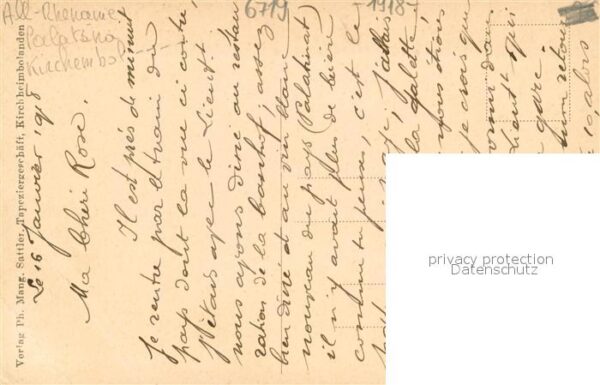 All-Rhenanie
Palatina
Kirchembol
6719
-1918-
Verlag Ph. Mang. Sattler, Tapeziergeschäft, Kirchheimbolanden
Le 16 Janvier 1918
Ma Chéri Rose,
Il est près de minuit
je rentre par le train du
pays dont la vue ci contre,
j'étais avec le Lieut.
nous avons diné au restau
ration de la banhof, assez
bien diné et au vin blanc
nouveau du pays (Palatinat)
il n'y avait plus de bière
comme tu penses, c'est le
j'allais
la galette!
nous étions
je crois que
dormir dans
Lieut. qui
gare
mon retour
alors
privacy protection
Datenschutz